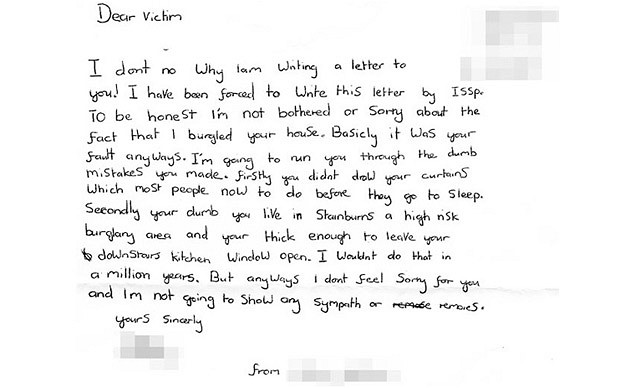 Dear Victim
I dont no Why Iam Writing a letter to
you! I have been forced to Write this letter by ISSP.
To be honest I'm not bothered or Sorry about the
fact that I burgled your house. Basicly it was your
fault anyways. I'm going to run you through the dumb
mistakes you made. firstly you didnt drow your curtains
which most people now to do before they go to Sleep.
Secondly your dumb you live in Stainburns a high risk
burglary area and your thick enough to leave your
downstairs kitchen window open. I Wouldnt do that in
a million years. But anyways I dont feel Sorry for you
and Im not going to show any sympath or remores.
yours Sincerly
from